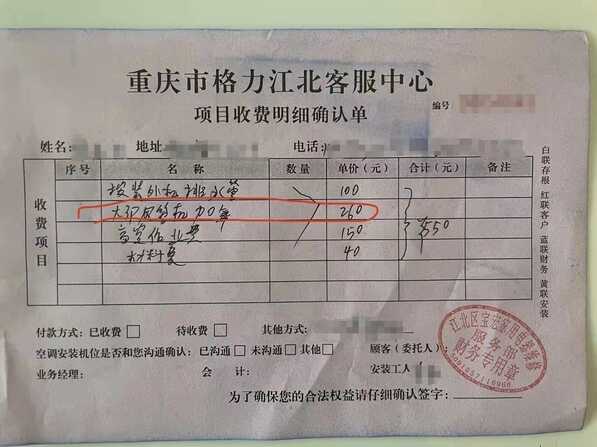 重庆市格力江北客服中心
项目收费明细确认单
编号
姓名: 地址: 电话:
序号 名称 数量 单价（元） 合计（元） 备注
收费项目
按装外机排水管 100
260
高空作业费 150
材料费 40
550
付款方式：已收费□ 待收费□ 其他方式:
空调安装机位是否和您沟通确认：已沟通□ 未沟通□ 其他□ 顾客（委托人）
业务经理: 会计: 安装工人
为了确保您的合法权益请仔细确认签字:
白联存根 红联客户 蓝联财务 黄联安装
服务部
财务专用章